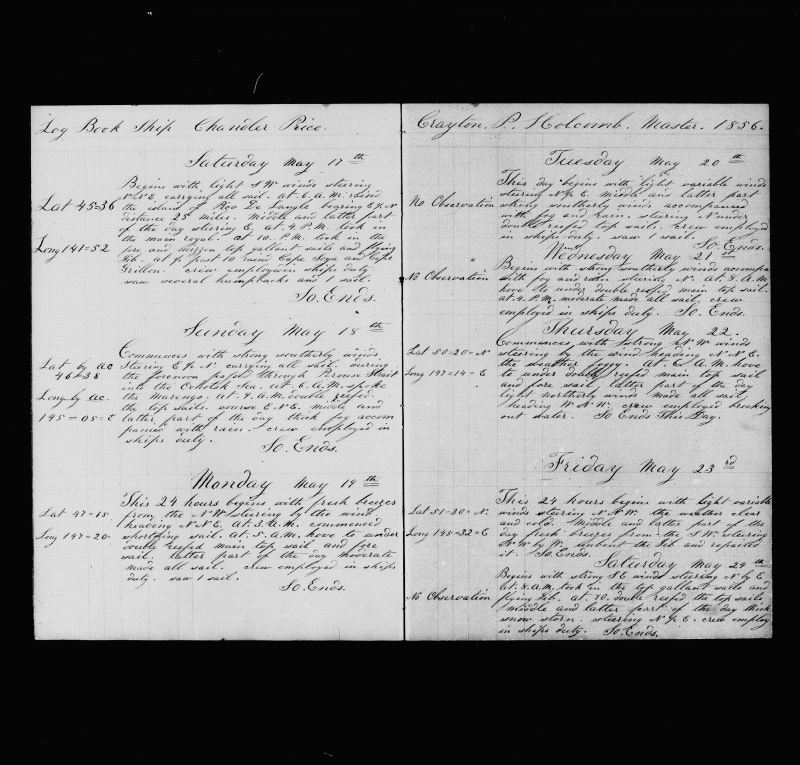 Log Book Ship Chandler Price.
Saturday May 17th
Lat 45=36
Long 141=52
Begins with light S W winds steering
N N E. carrying all sail. at. 6. A.M. raised
the island of Pico De Langle bearing E
distance 25 miles. Middle and latter part
of the day steering E. at. 4. P.M. took in
the main royal. At 10. P.M. took in the
fore and mizzen top gallant sails and flying
Jib. at past 10 raised Cape Soya and Cape
Crillon. crew employed in ships duty
saw several humpbacks and 1 sail.
So. Ends.
Sunday May 18th
Lat by ac
46=38
Long by ac.
145=05=E
Commences with strong southerly winds
Steering E N carrying all sail. during
the forenoon passed through Strait
into the Ochotsk Sea. at. 6. A.M. spoke
the Marengo. At. 4. A.M. double reefed
the top sails. course E N E. middle and
latter part of the day thick fog accom
panied with rain. crew employed in
ships duty.
So. Ends.
Monday May 19th
Lat 47=15
Long 147=20
This 24 hours begins with fresh breezes
from the N W steering by the wind
heading N N E. At. 3. A.M. commenced
shortning sail. At. 5. A.M. hove to under
double reefed main top sail and fore
sail. latter part of the day moderate
made all sail. Crew employed in ships
duty. saw 1 sail.
So. Ends.
Crayton. P. Holcomb. Master. 1856.
Tuesday May 20th
No Observation
This day begins with light variable winds
steering N E. Middle and latter part
strong southerly winds accompanied
with fog and rain. steering N under
double reefed top sails. crew employed
in ships duty. saw 1 sail.
So. Ends.
Wednesday May 21st
No Observation
Begins with strong southerly winds accompa
with fog and rain steering N. at. 8. A.M.
hove to under double reefed main top sail.
at. 4. P.M. moderate made all sail. crew
employed in ships duty. So. Ends.
Thursday May 22.
Lat 50=20=N
Long 147=14=E
Commences with strong N W winds
steering by the wind heading N N E.
the weather foggy. At. 6. A.M. hove
to under double reefed main top sail
and fore sail. latter part of the day
light northerly winds made all sail
heading W N W. crew employed breaking
out water. So Ends This Day.
Friday May 23rd
Lat 51=30=N.
Long 145=32=E
This 24 hours begins with light variable
winds steering N N W. the weather clear
and cold. Middle and latter part of the
day fresh breezes from the S W. steering
N W by W. unbent the Jib and repaired
it. So. Ends.
Saturday May 24th
No Observation
Begins with strong S E winds steering N by E
at. 8. A.M. took in the top gallant sails and
flying Jib. at. 10. double reefed the top sails
Middle and latter part of the day thick
snow storm. steering N E. crew employ
in ships duty. So. Ends.